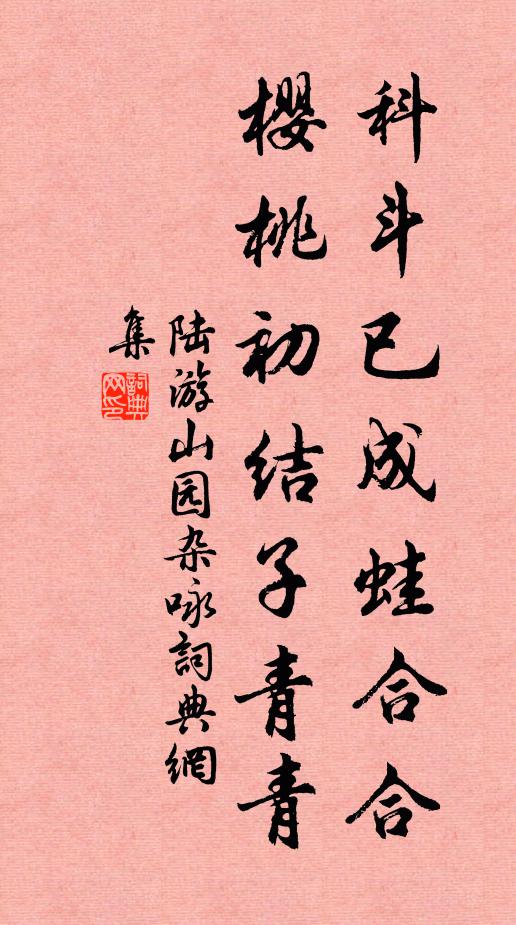 科斗已成蛙合合
樱桃初结子青青
陆游山园杂咏詞典網
集
詞典
网印